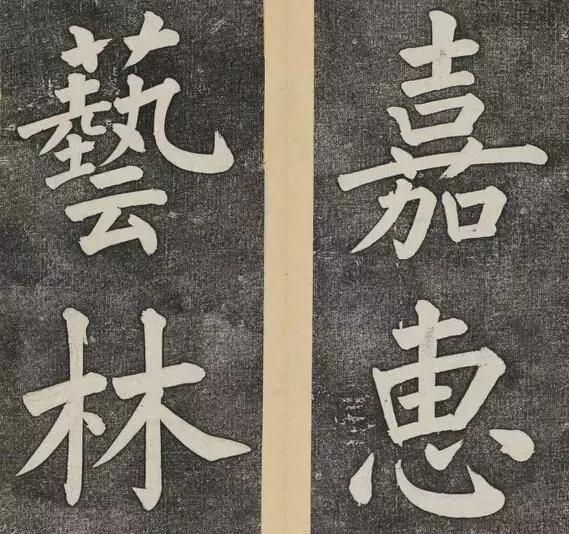 嘉惠
藝林